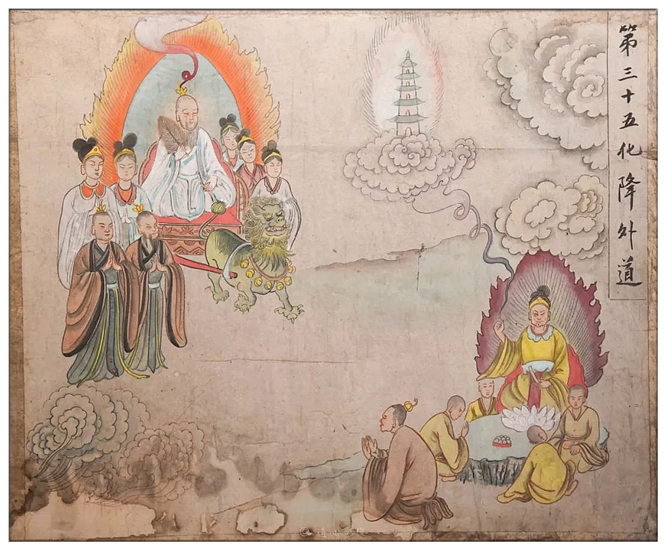 第三十五化降外道